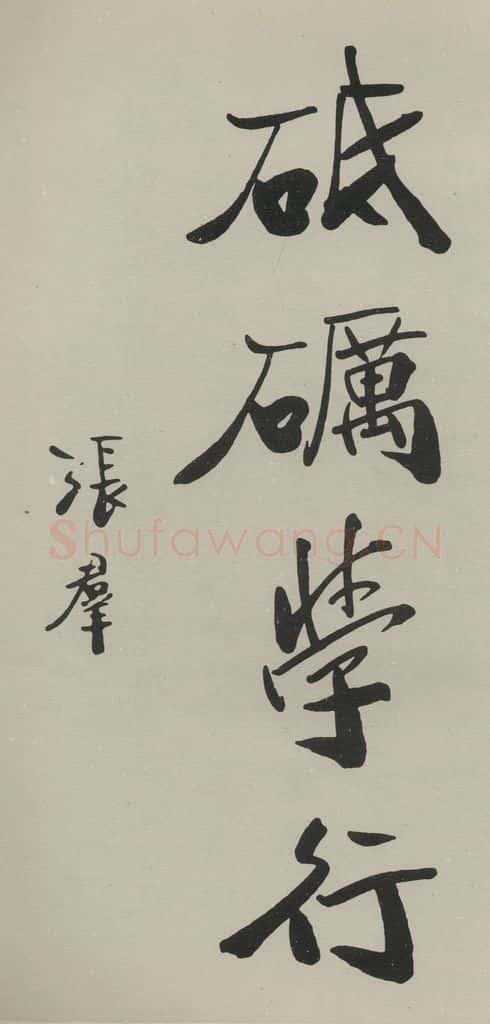 砥礪學行
張羣
Shufawang.CN